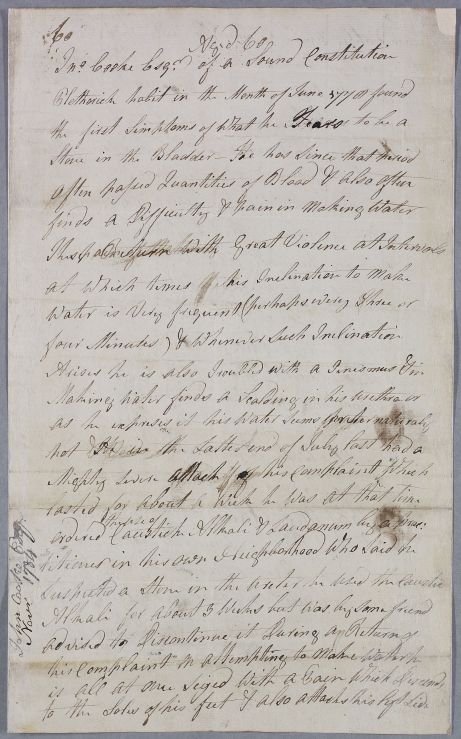 60
Aged 60
Jno. Cooke Esqr. of a Sound Constitution
habit in the Month of June found
the first Simptoms of what he Fears to be a
Stone in the Bladder - He has Since that period
often passed Quantities of Blood & also often
finds a Difficulty & pain in Making Water
Return With Great Violence at Intervals
at Which times his Inclination to Make
Water is Very frequent (perhaps every three or
four Minutes) & Whenever Such Inclination
Arises he is also Troubled with a Tenesmus & in
Making Water finds a Scalding in his Urethra or
as he expresses it his Water Seems
hot the Latter end of July last had a
Severe attack of his Complaint Which
lasted for about a Week he was at that time
ordered the use of Caustick Alkali & Laudanum by a
in his own Neighborhood Who said he
Suspected a Stone in the he used the Caustic
Alkali for about 3 Weeks but was by some friend
advised to Discontinue it During a Return of
his Complaint in attempting to Make Water he
is all at once Siezed With a Pain Which
to the Soles of his feet & also attacks his left Side
John Cooke Esqr.
1784